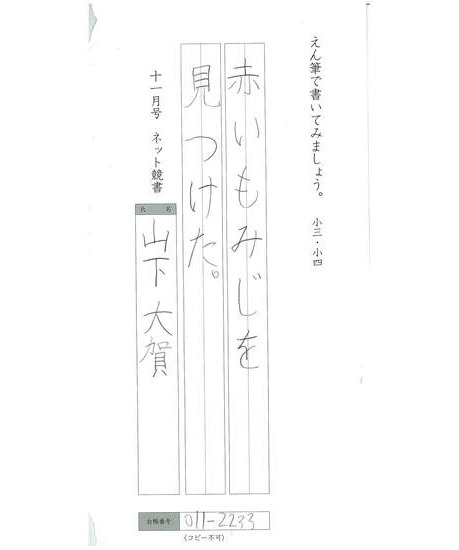 えん筆で書いてみましょう。 小三・小四
赤いもみじを
見つけた。
十一月号 ネット競書
氏名
山下大賀
台帳番号 011-2233
〈コピー不可〉